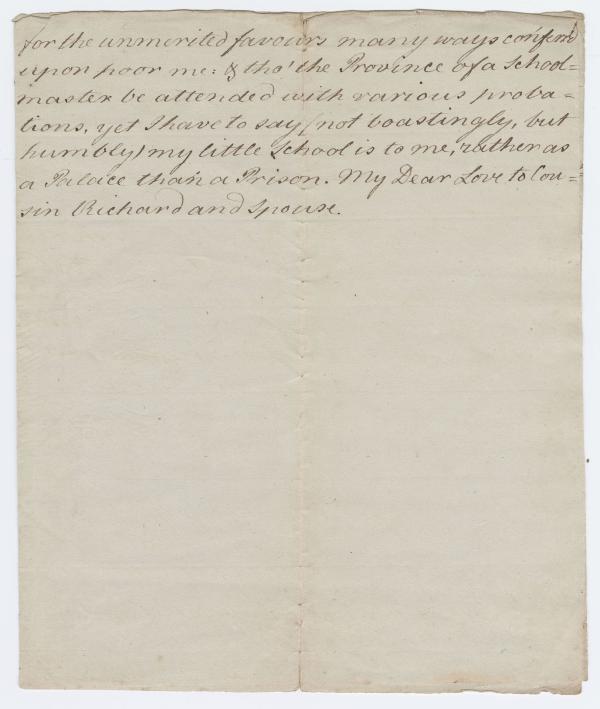 for the unmerited favours many ways confer'd
upon poor me: & tho' the Province of a School=
master be attended with various proba=
tions, yet I have to say (not boastingly, but
humbly) my little School is to me, rather as
a Palace than a Prison. My Dear Love to Cou=
sin Richard and Spouse.